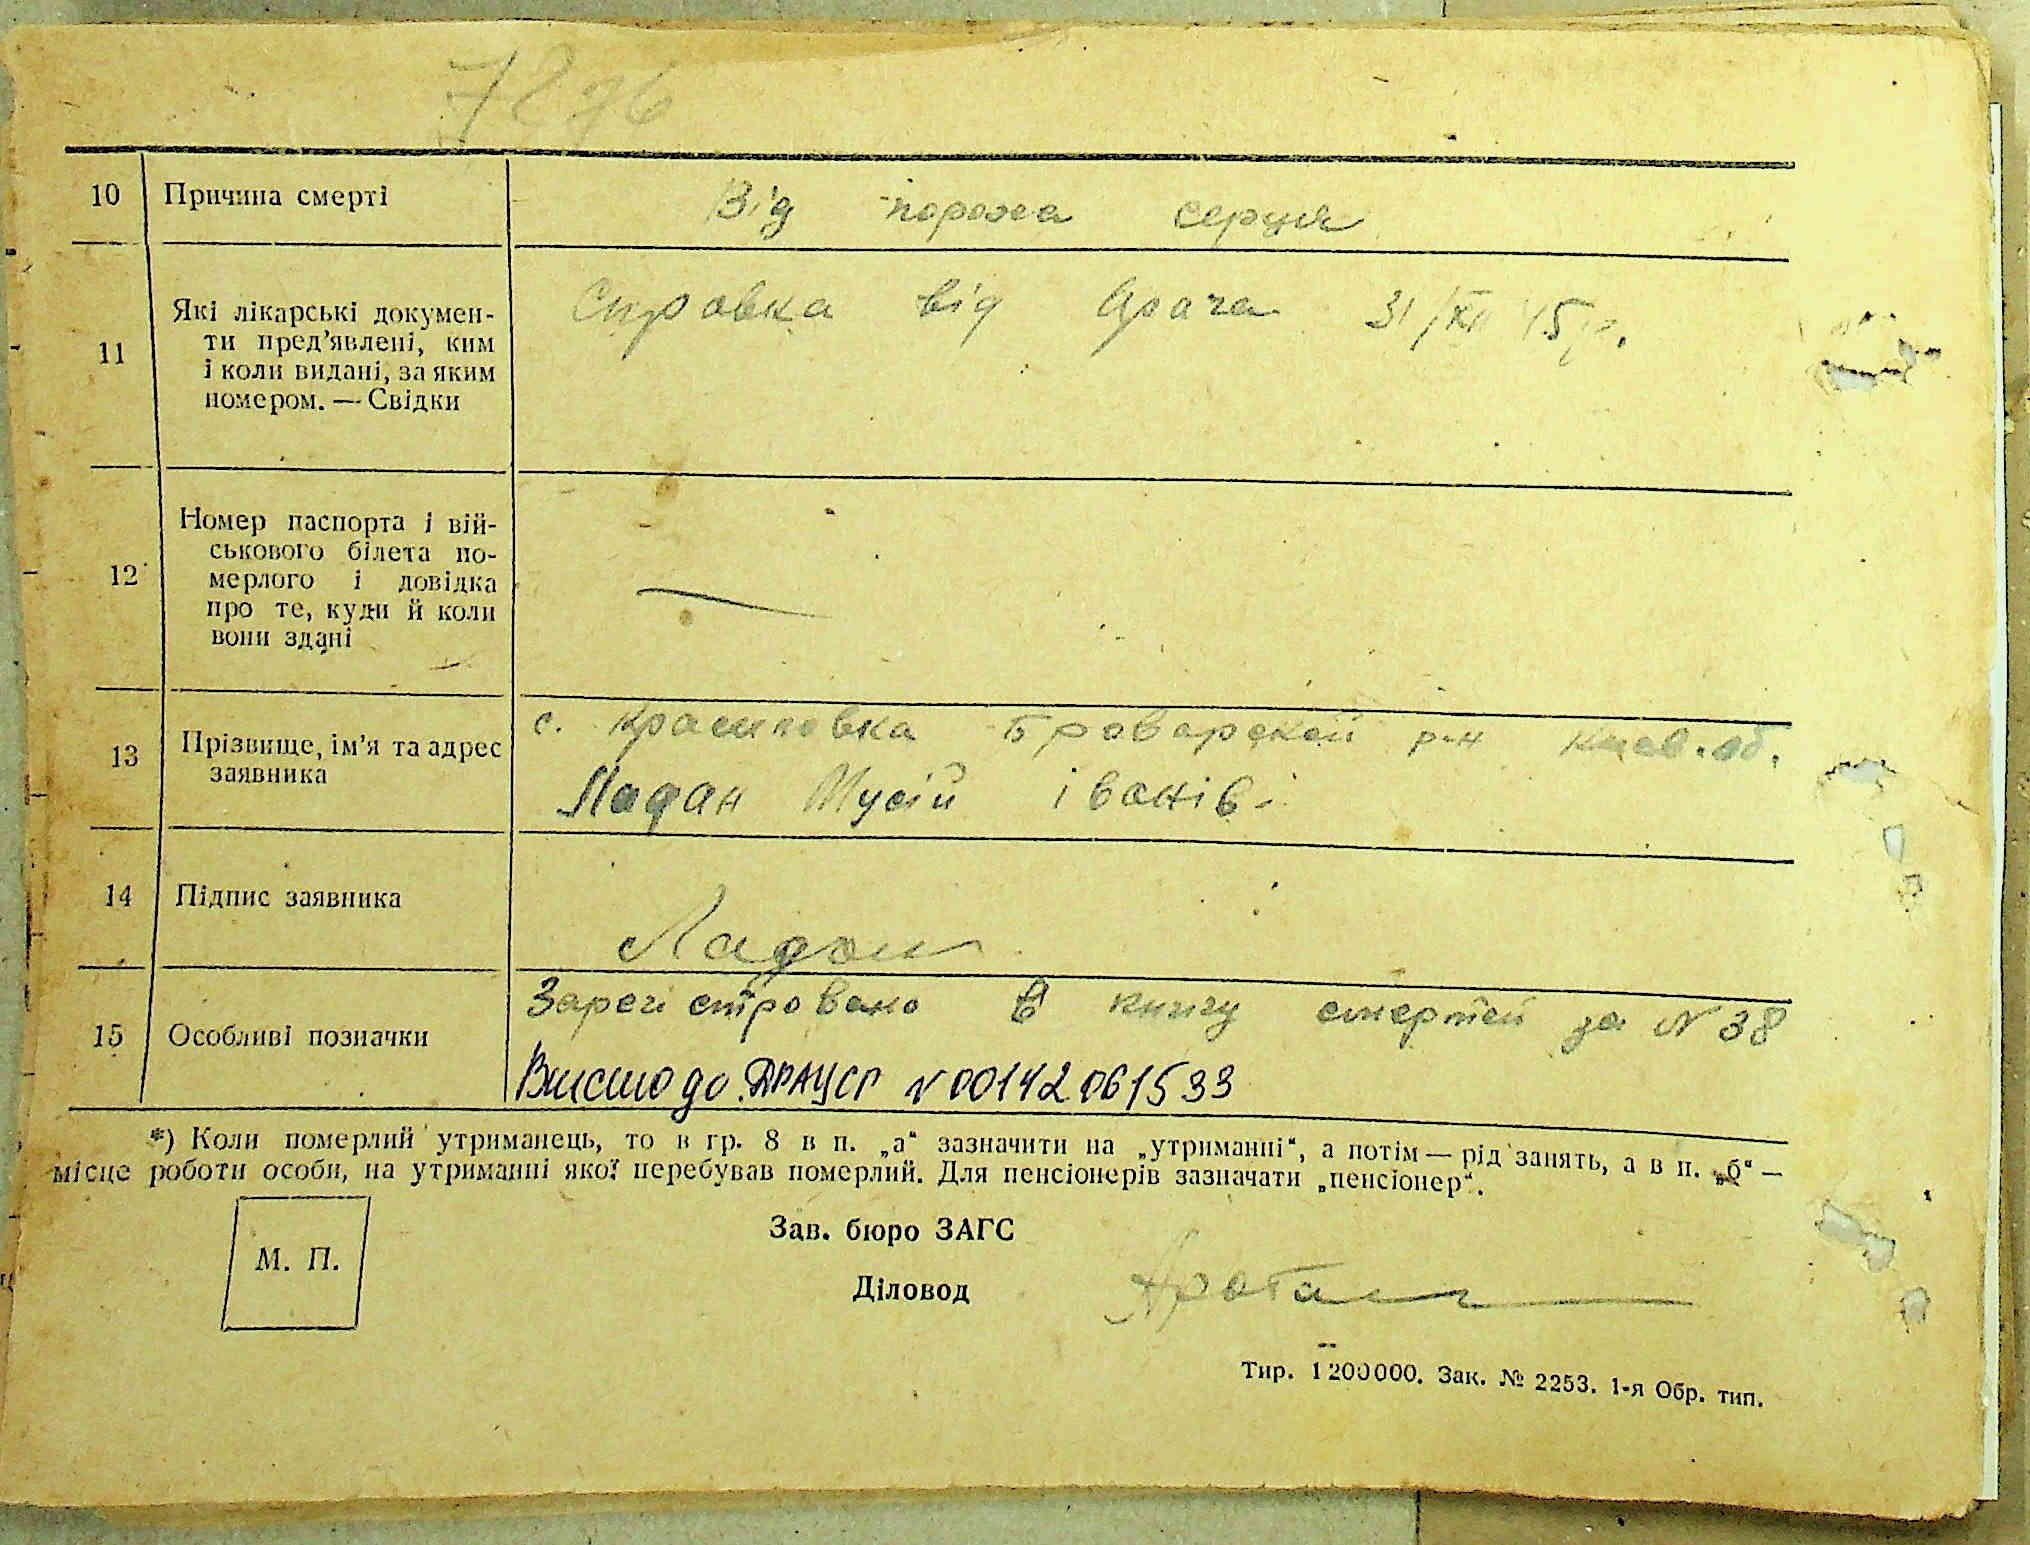 10 Причина смерті Від порока серця
11 Які лікарські докумен-
ти пред'явлені, ким
і коли видані, за яким
номером. — Свідки
Справка від врача 31/XII 45 р.
12 Номер паспорта і вій-
ськового білета по-
мерлого і довідка
про те, куди й коли
вони здані
—
13 Прізвище, ім'я та адрес
заявника
с. Красиловка Броварской р-н Киев. об.
Ладан Мусій Іванів.
14 Підпис заявника Ладан
15 Особливі позначки
Зарегістровано в книгу смертей за N 38
Внесено до ДРАЦСГ N 00142061533
*) Коли померлий утриманець, то в гр. 8 в п. „а“ зазначити на „утриманні“, а потім — рід занять, а в п. „б“ —
місце роботи особи, на утриманні якої перебував померлий. Для пенсіонерів зазначати „пенсіонер“.
М. П.
Зав. бюро ЗАГС
Діловод
Тир. 1200000. Зак. № 2253. 1-я Обр. тип.